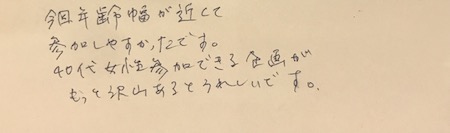 今回年齢幅が近くて
参加しやすかったです。
40代女性参加できる企画が
もっと沢山あるとうれしいです。